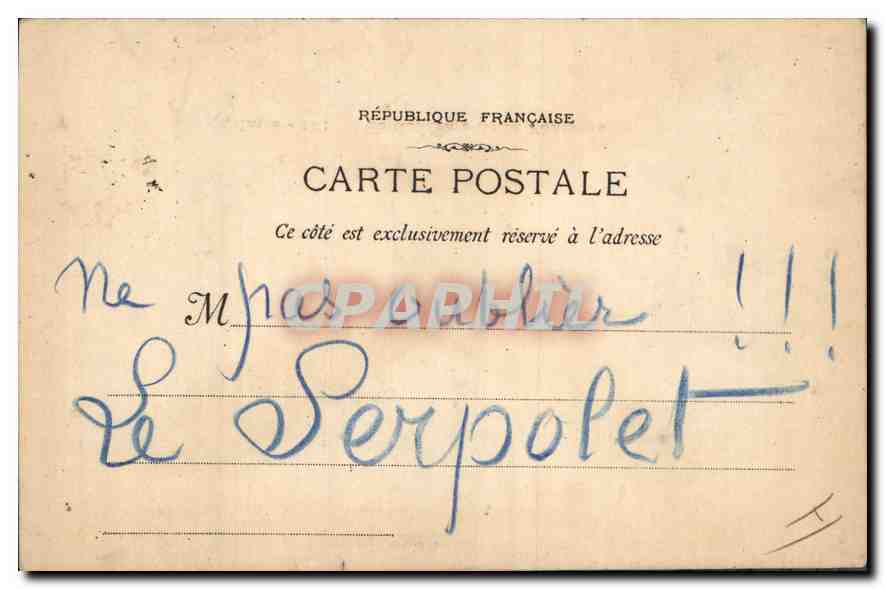 RÉPUBLIQUE FRANÇAISE
CARTE POSTALE
Ce côté est exclusivement réservé à l'adresse
Ne M pas oublier !!!
CPARHIL
Le Serpolet
H